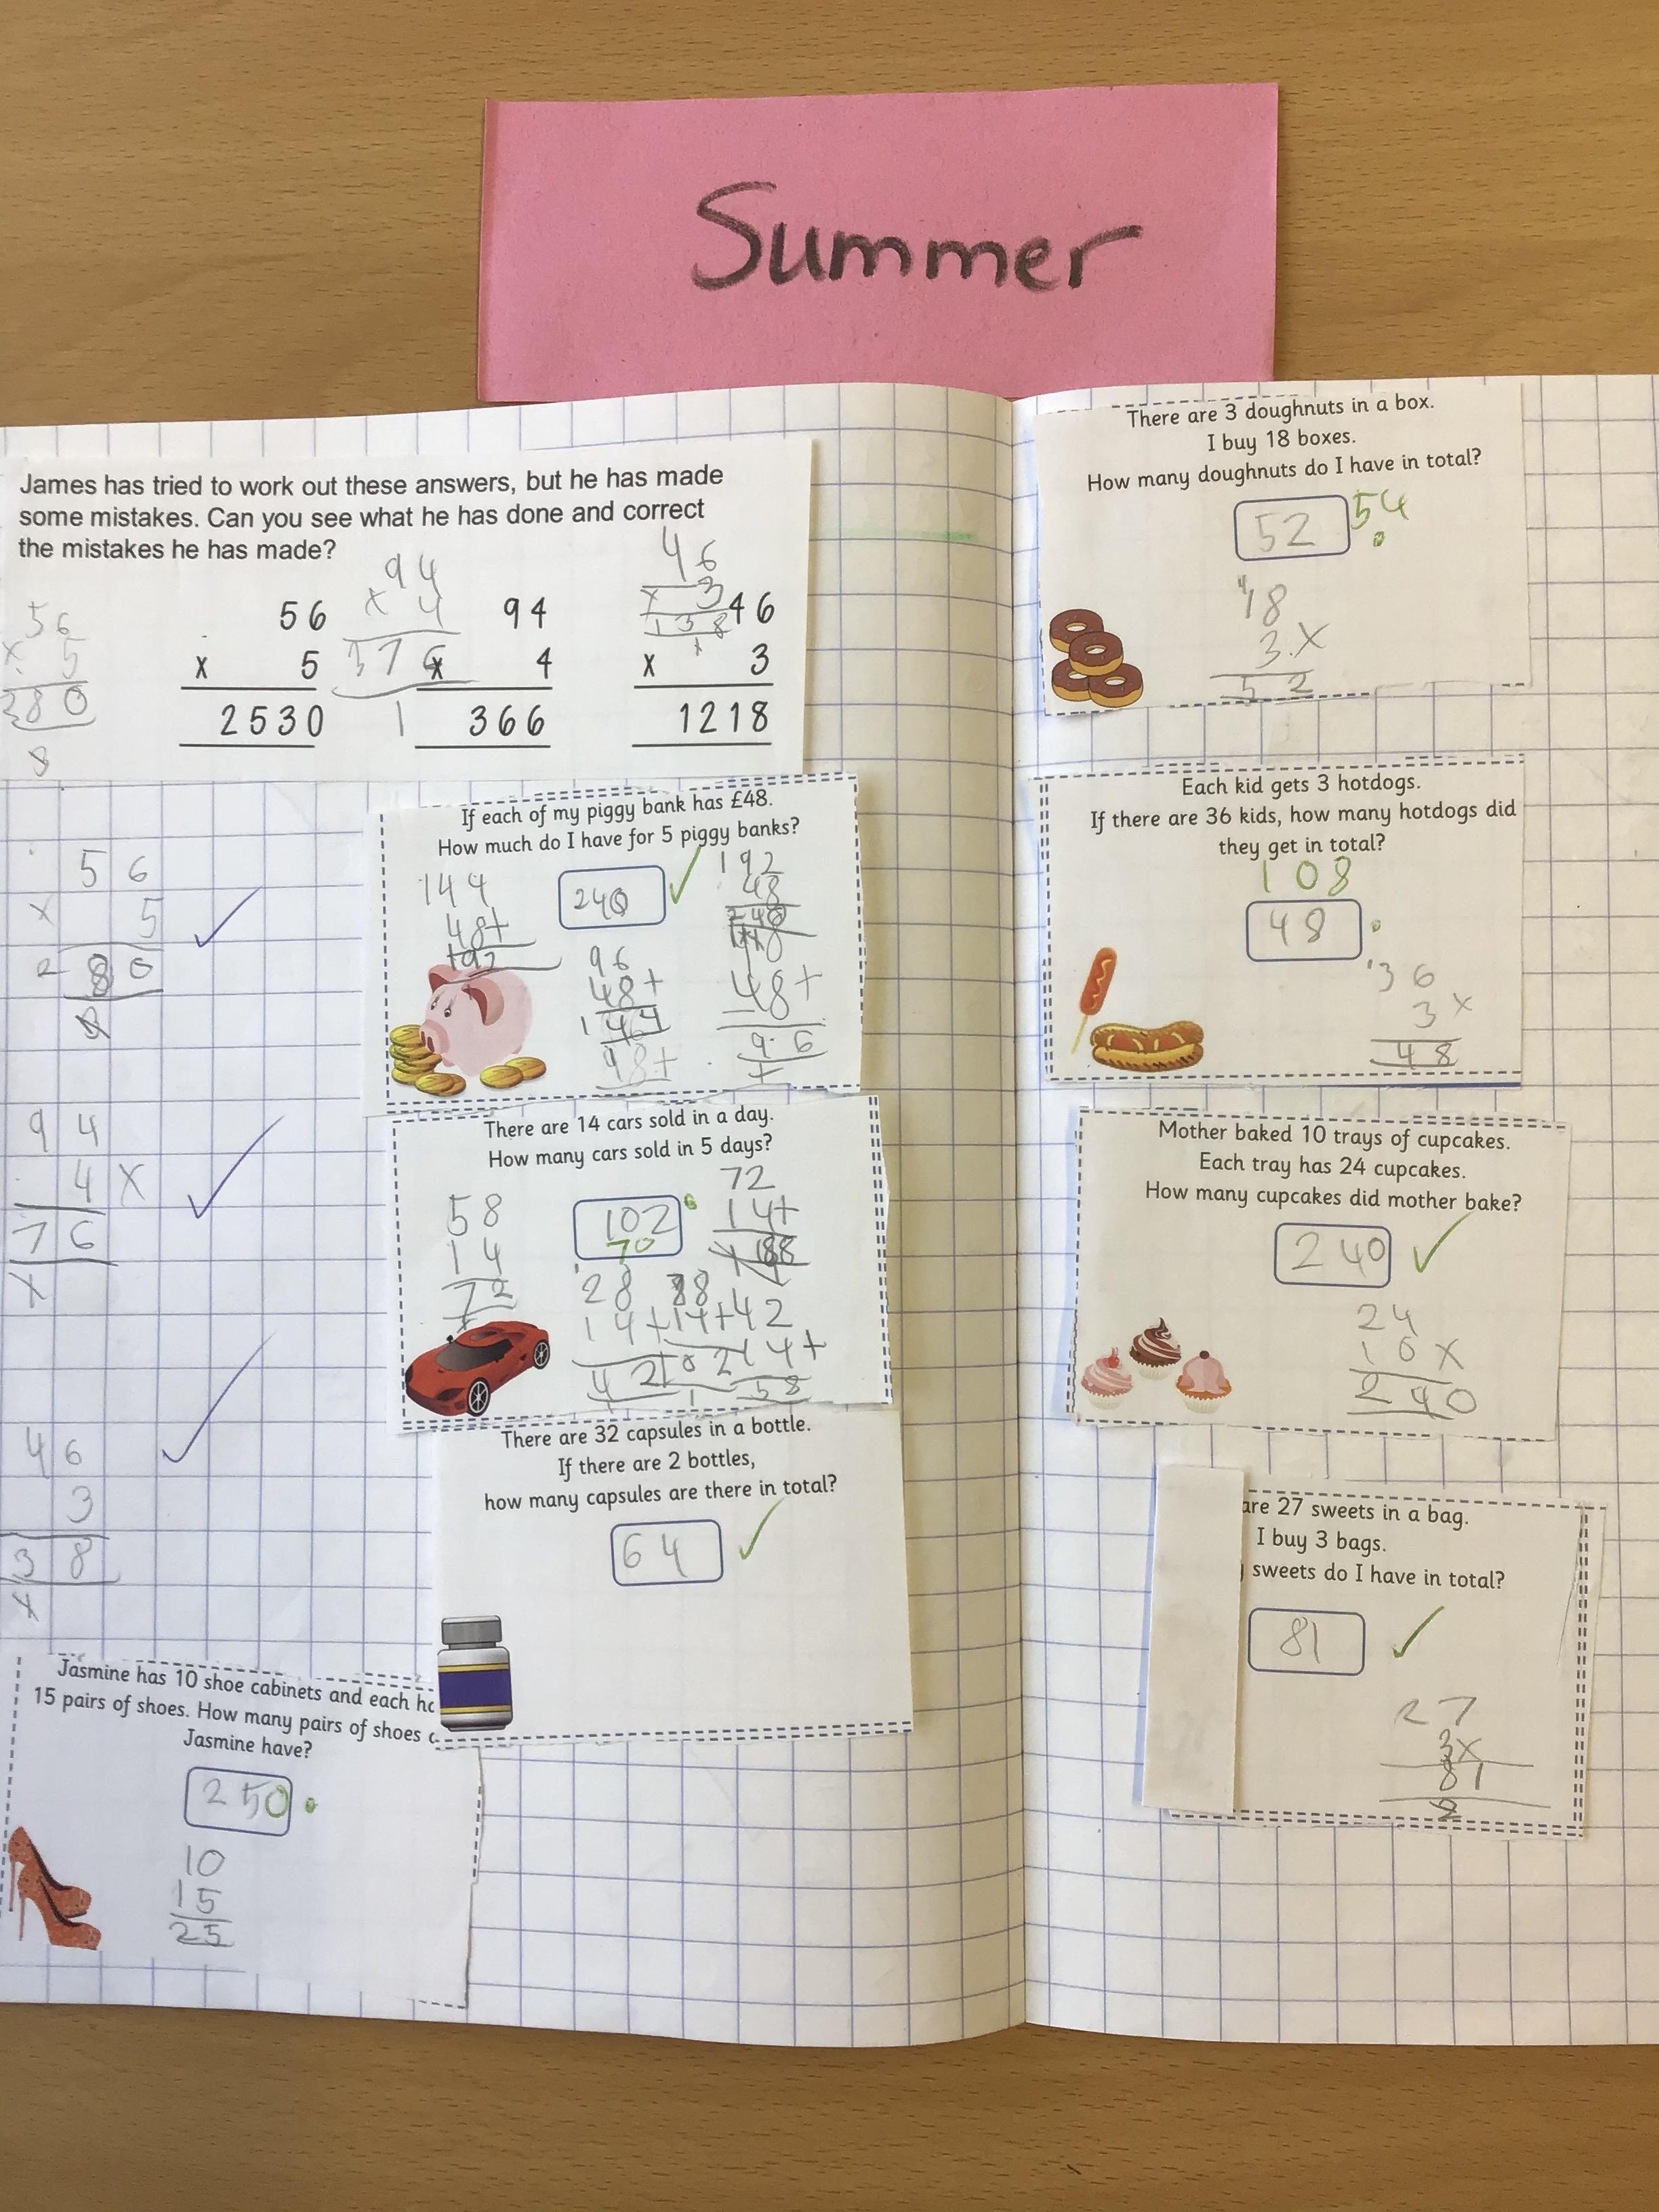 Summer
James has tried to work out these answers, but he has made
some mistakes. Can you see what he has done and correct
the mistakes he has made?
56
x 5
280
8
56
x 5
2530
94
x 4
376
1
94
x 4
366
46
x 3
138
1
46
x 3
1218
56
x 5
280
94
4 x
76
46
3
38
If each of my piggy bank has £48.
How much do I have for 5 piggy banks?
240
144
48+
192
96
48+
144
48+
192
48
240
48+
96
There are 14 cars sold in a day.
How many cars sold in 5 days?
102
70
58
14
72
28
14+
42
88
14+
102
72
14+
42
14+
58
There are 32 capsules in a bottle.
If there are 2 bottles,
how many capsules are there in total?
64
Jasmine has 10 shoe cabinets and each
15 pairs of shoes. How many pairs of shoes
Jasmine have?
250
10
15
25
There are 3 doughnuts in a box.
I buy 18 boxes.
How many doughnuts do I have in total?
52 54
18
3 x
52
Each kid gets 3 hotdogs.
If there are 36 kids, how many hotdogs did
they get in total?
108
48
36
3 x
48
Mother baked 10 trays of cupcakes.
Each tray has 24 cupcakes.
How many cupcakes did mother bake?
240
24
10 x
240
are 27 sweets in a bag.
I buy 3 bags.
sweets do I have in total?
81
27
3x
81
2